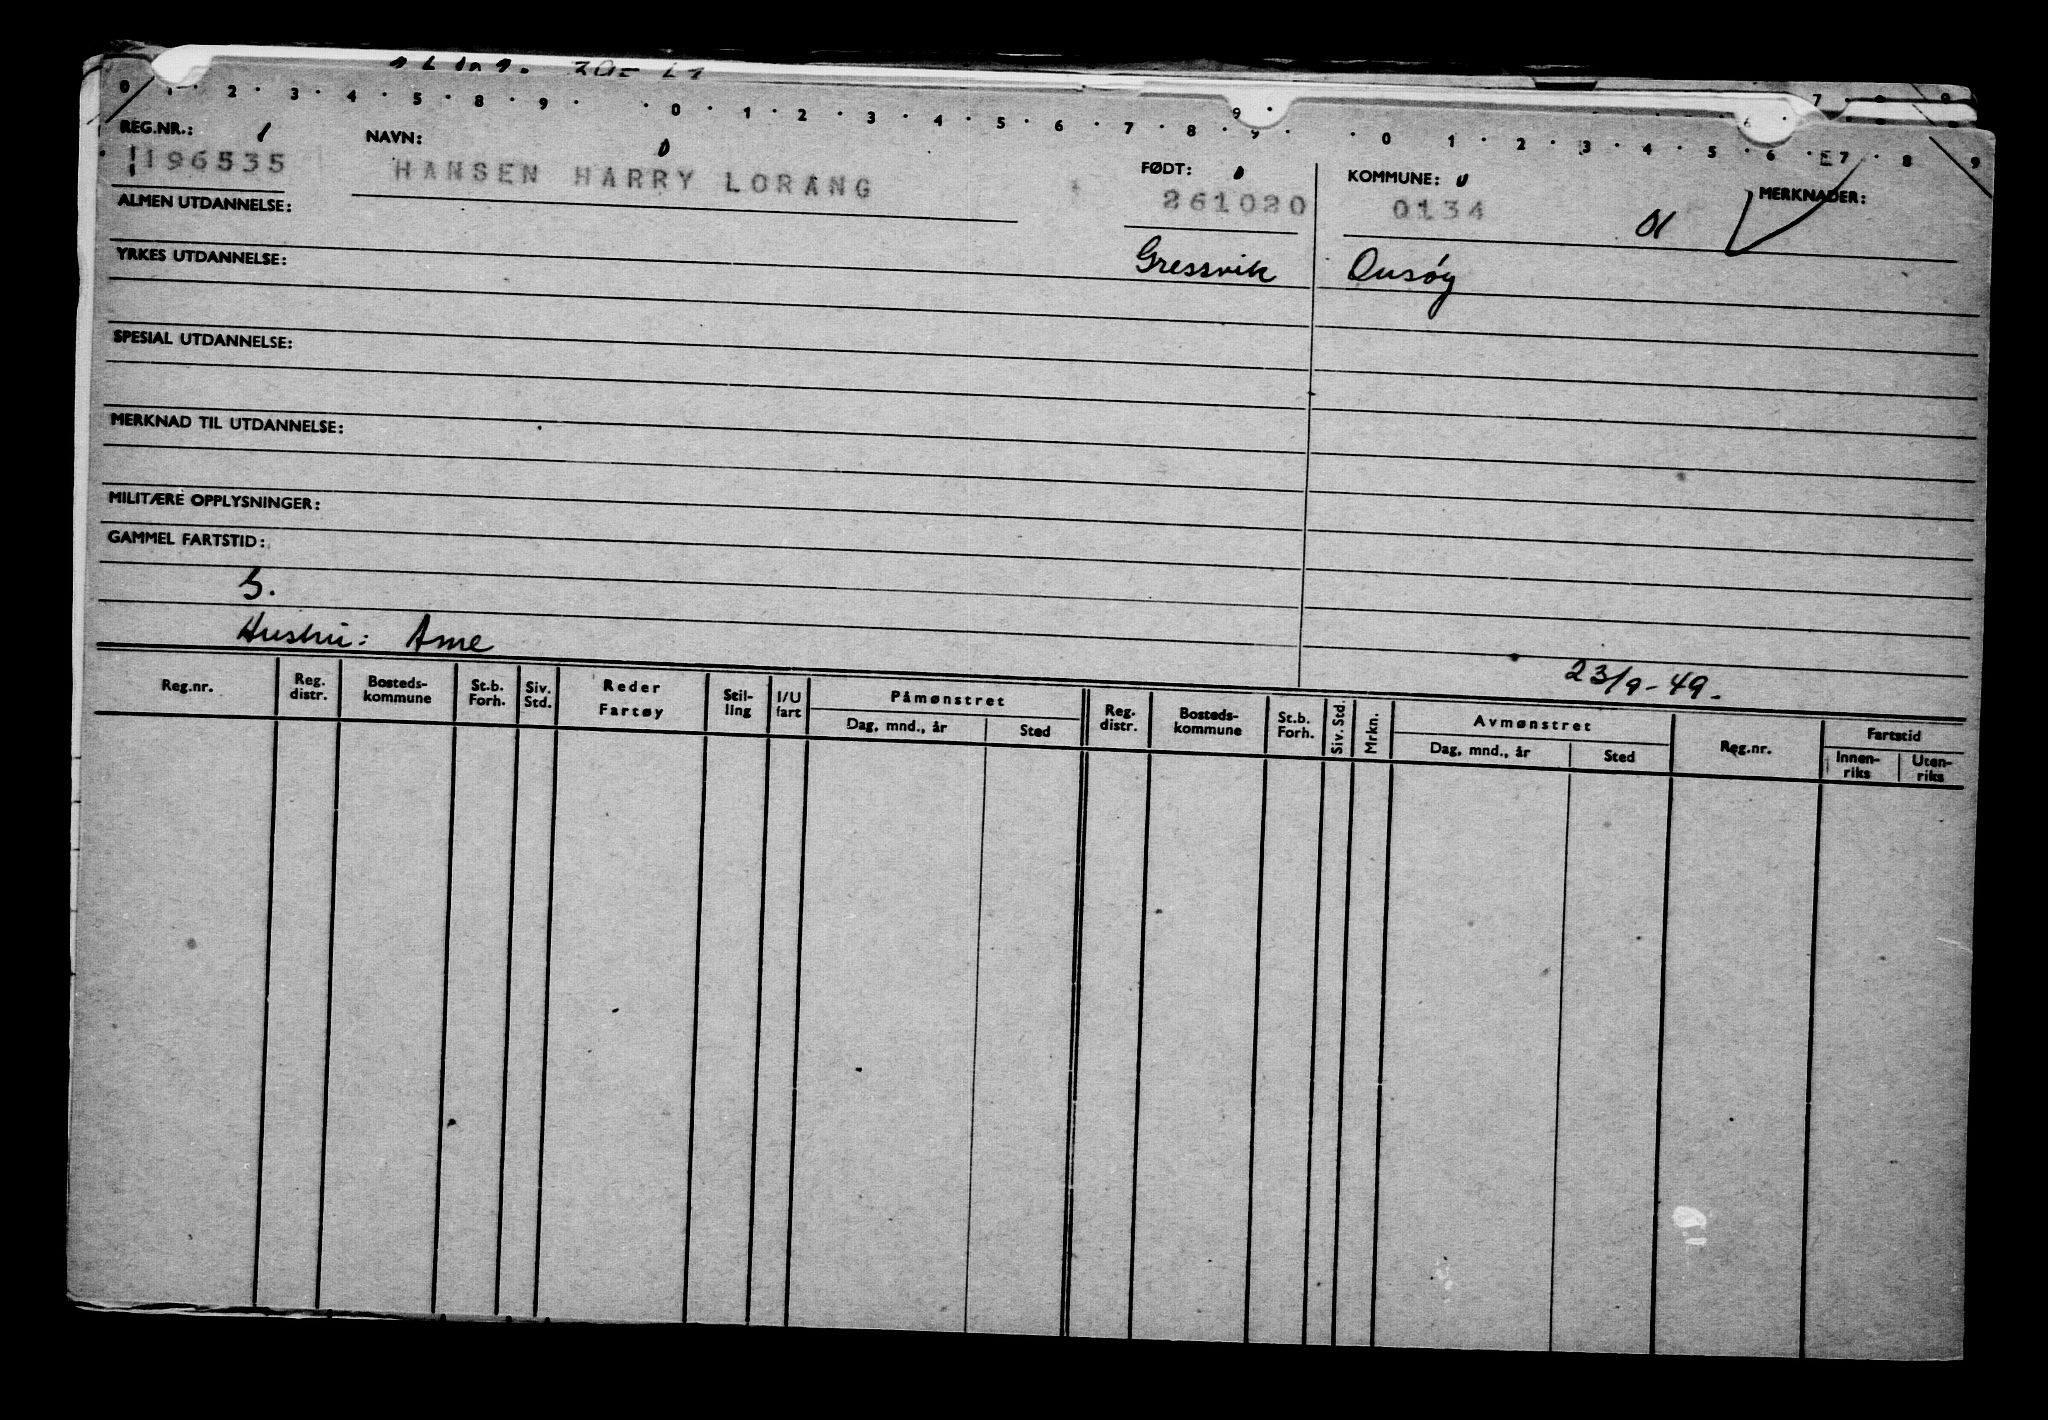 0 · 1 · 2 · 3 · 4 · 5 · 8 · 9 · · 0 · 1 · 2 · 3 · 4 · 5 · 6 · 7 · 8 · 9 · · 0 · 1 · 2 · 3 · 4 · 5 · 6 · 7 · 8 9
REG.NR.: NAVN: FØDT: KOMMUNE: MERKNADER:
196535 HANSEN HARRY LORANG 261020 0134
ALMEN UTDANNELSE:
Gressvik Onsøy
YRKES UTDANNELSE:
SPESIAL UTDANNELSE:
MERKNAD TIL UTDANNELSE:
MILITÆRE OPPLYSNINGER:
GAMMEL FARTSTID:
3.
Hustru: Arne
23/9-49.
Reg.nr. Reg. distr. Bosteds-kommune St.b. Forh. Siv. Std. Reder Fartøy Stil-ling I/U fart Påmønstret Dag, mnd., år Sted Reg. distr. Bosteds-kommune St.b. Forh. Siv. Std. Mrkn. Avmønstret Dag, mnd., år Sted Reg.nr. Fartstid Innen-riks Uten-riks